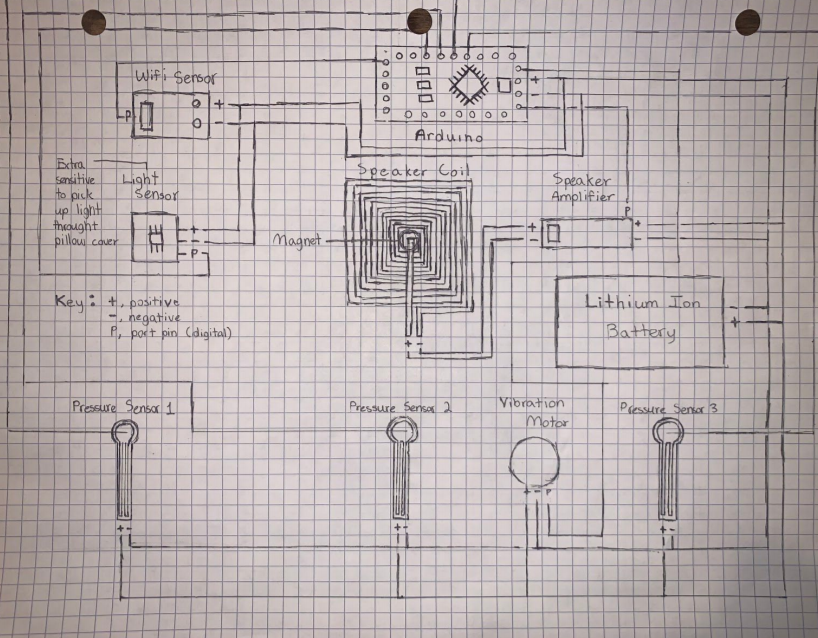 Wifi Sensor
P
+
-
+
-
Arduino
Extra
sensitive
to pick
up light
throught
pillow cover
Light
Sensor
+
-
P
Speaker Coil
Magnet
+ -
Speaker
Amplifier
P
+
-
+
-
Lithium Ion
Battery
-
+
Key: +, positive
-, negative
P, port pin (digital)
Pressure Sensor 1
+ -
Pressure Sensor 2
+ -
Vibration
Motor
+ - P
Pressure Sensor 3
+ -